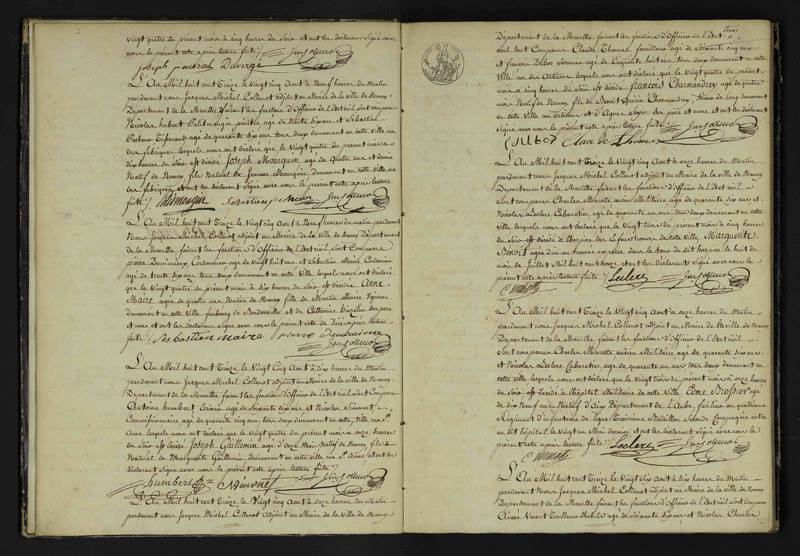 vingt quatre du présent mois à cinq heures du Soir et ont les déclarans Signé avec
nous le présent acte après lecture faite
Joseph Duvergé
L'An Mil huit cent Treize le Vingt cinq Aout à Neuf heures du Matin
pardevant nous Jacques Michel Collenot adjoint au Maire de la Ville de Nancy
Département de la Meurthe faisant les fonctions d'Officier de l'état civil Sont comparus
Nicolas hubert agé de trente six ans et Sébastien
agé de quarante six ans tous deux demeurant en cette Ville rue
des fabriques lesquels nous ont déclaré que le Vingt quatre du présent mois à
dix heures du Soir est décédé Joseph Mourquin agé de Quatre ans et demi
Natif de Nancy fils Naturel de Jeanne demeurant en cette Ville rue
des fabriques et ont les déclarans Signé avec nous le présent acte après lecture
faite
L'An Mil huit cent Treize le Vingt cinq Aout à Neuf heures du matin pardevant
Nous Jacques Michel Collenot adjoint au Maire de la Ville de Nancy Département
de la Meurthe faisant les fonctions d'Officier de l'état civil Sont Comparus
pierre Cordonnier agé de Vingt huit ans et Sébastien Maire Cordonnier
agé de trente six ans tous deux demeurant en cette Ville lesquels nous ont déclaré
que le Vingt quatre du présent mois à dix heures du Soir est décédée Anne
Maire agée de quatre ans Native de Nancy fille de Martin Maire Vigneron
demeurant en cette Ville faubourg de et de Catherine ses père
et mère et ont les déclarans Signé avec nous le présent acte de décès après lecture
faite Sebastien maire pierre
L'An Mil huit cent Treize le Vingt Cinq Aout à dix heures du Matin
pardevant nous Jacques Michel Collenot adjoint au Maire de la Ville de Nancy
Département de la Meurthe faisant les fonctions d'Officier de l'état civil Sont Comparus
Antoine humbert agé de Soixante dix ans et Nicolas
agé de quarante cinq ans tous deux demeurant en cette Ville rue St
Anne lesquels nous ont déclaré que le Vingt quatre du présent mois à onze heures
du Soir est décédé Joseph Guillemin agé d'onze Mois Natif de Nancy fils
Naturel de Marguerite Guillemin demeurant en cette ville rue St Anne et ont les
déclarans Signé avec nous le présent acte après lecture faite
humbert
L'An Mil huit cent Treize le Vingt cinq Aout à onze heures du Matin
pardevant nous Jacques Michel Collenot adjoint au Maire de la Ville de Nancy
Département de la Meurthe faisant les fonctions d'Officier de l'état
civil Sont Comparus Claude Thomas agé de Soixante cinq ans
et francois agé de Cinquante huit ans tous deux demeurant en cette
Ville rue des lesquels nous ont déclaré que le Vingt quatre du présent
mois à onze heures du Soir est décédé francois Charmandrey agé de quatre
ans Natif de Nancy fils de Benoit Charmandrey demeurant
en cette Ville et d'Agnès ses père et mère et ont les déclarans
Signé avec nous le présent acte après lecture faite
L'An Mil huit cent Treize le Vingt cinq Aout à onze heures du Matin
pardevant nous Jacques Michel Collenot adjoint au Maire de la ville de Nancy
Département de la Meurthe faisant les fonctions d'Officier de l'état civil
Sont comparus Charles Marotte Militaire agé de quarante six ans et
Nicolas Leclere Cabaretier agé de quarante un ans tous deux demeurant en cette
Ville lesquels nous ont déclaré que le Vingt trois du présent mois à cinq heures
du Soir est décédée à l'hospice des Enfans trouvés de cette Ville Marguerite
Benoit agée d'un an trouvée exposée dans le tour du dit hospice le huit du
mois de Juillet Mil huit cent Douze et ont les déclarans Signé avec nous le
présent acte après lecture faite Leclere
C Marotte
L'An Mil huit cent Treize le Vingt cinq Aout à onze heures du Matin
pardevant nous Jacques Michel Collenot adjoint au Maire de la Ville de Nancy
Département de la Meurthe faisant les fonctions d'Officier de l'état civil
Sont comparus Charles Marotte Militaire agé de quarante six ans
et Nicolas Leclere Cabaretier agé de quarante un ans tous deux demeurant en
cette ville lesquels nous ont déclaré que le Vingt trois du présent mois à quatre heures
du Soir est décédé à l'hôpital Militaire de cette Ville Edme Brossier agé
de dix Neuf ans Natif d'Aix Département de l'Aube fusilier au quatrième
Régiment d'infanterie de ligne troisième Bataillon Seconde Compagnie entré
au dit hôpital le Vingt un Mai dernier et ont les déclarans Signé avec nous le
présent acte après lecture faite Leclere
C Marotte
L'An Mil huit cent Treize le Vingt six Aout à dix heures du Matin
pardevant Nous Jacques Michel Collenot adjoint au Maire de la Ville de Nancy
Département de la Meurthe faisant les fonctions d'Officier de l'état civil Sont Comparus
Tailleur d'habits agé de Soixante dix ans et Nicolas Charles